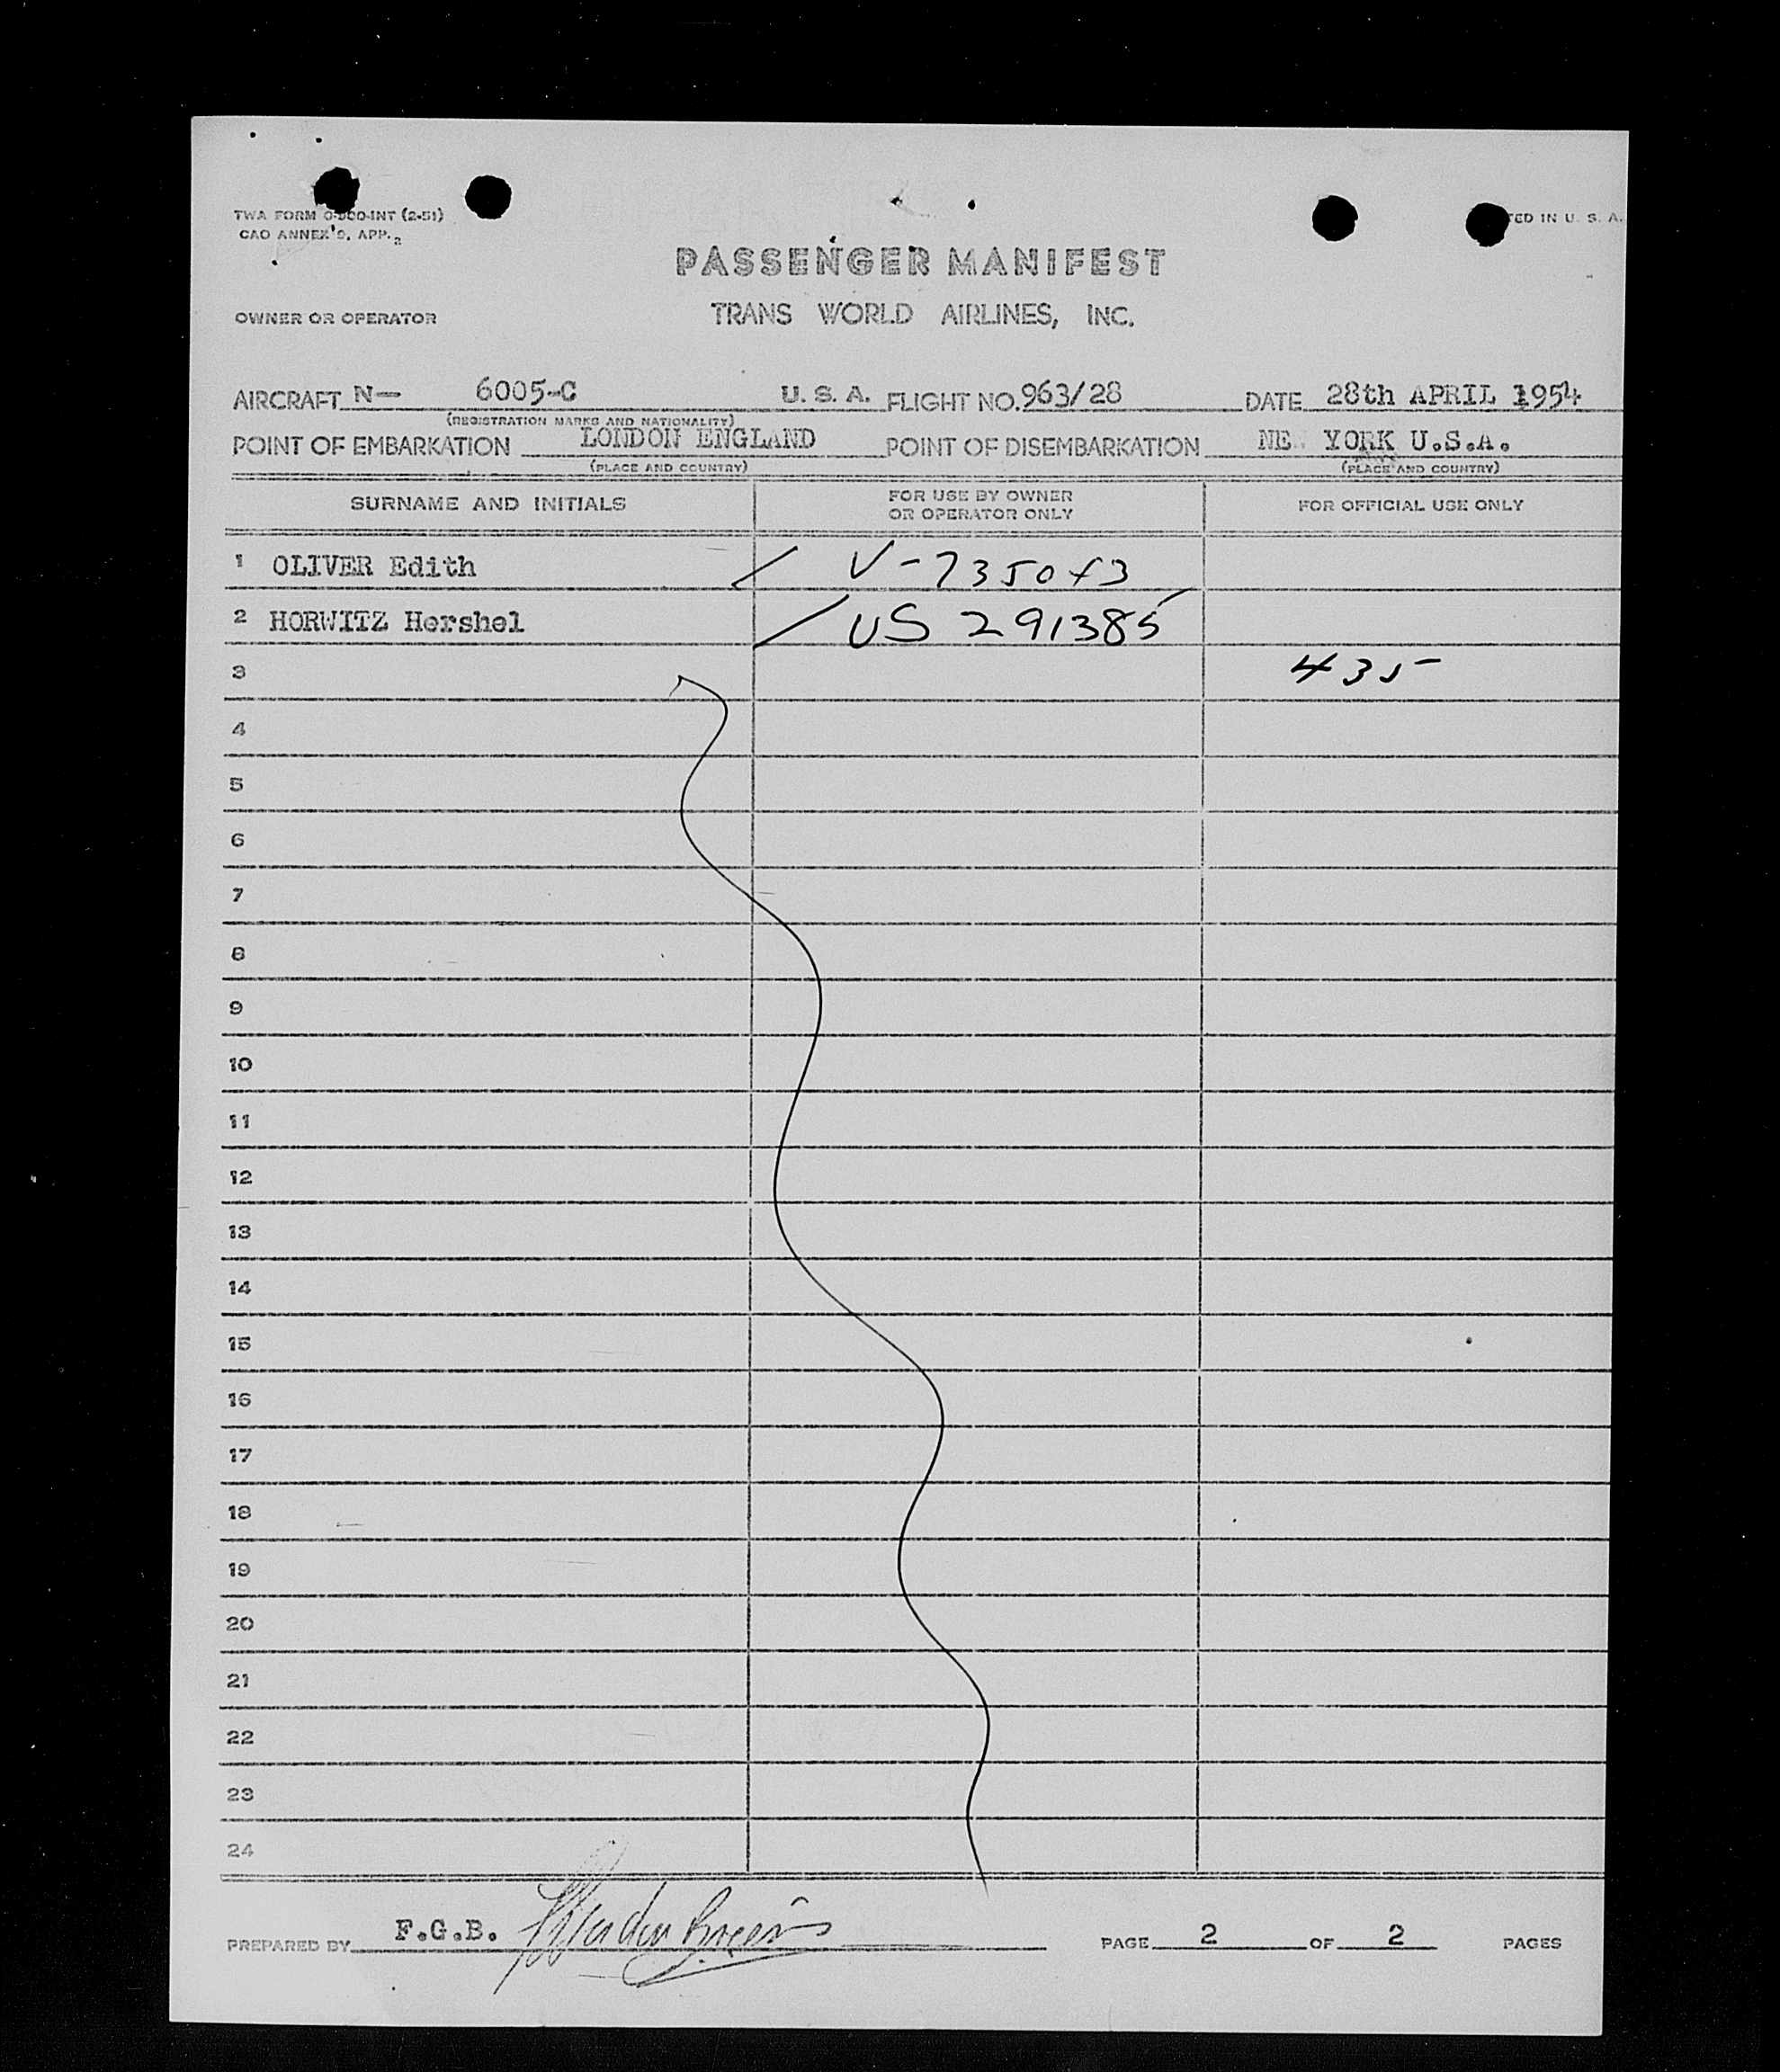 TWA FORM O-500-INT (2-51)
CAO ANNEX'9, APP. 2
TED IN U. S. A.
PASSENGER MANIFEST
OWNER OR OPERATOR
TRANS WORLD AIRLINES, INC.
AIRCRAFT N— 6005-C U. S. A. FLIGHT NO. 963/28 DATE 28th APRIL 1954
(REGISTRATION MARKS AND NATIONALITY)
POINT OF EMBARKATION LONDON ENGLAND POINT OF DISEMBARKATION NE YORK U.S.A.
(PLACE AND COUNTRY) (PLACE AND COUNTRY)
SURNAME AND INITIALS FOR USE BY OWNER OR OPERATOR ONLY FOR OFFICIAL USE ONLY
1 OLIVER Edith / V-7350
2 HORWITZ Hershel / US 291385
3 435
4
5
6
7
8
9
10
11
12
13
14
15
16
17
18
19
20
21
22
23
24
PREPARED BY F.G.B. PAGE 2 OF 2 PAGES